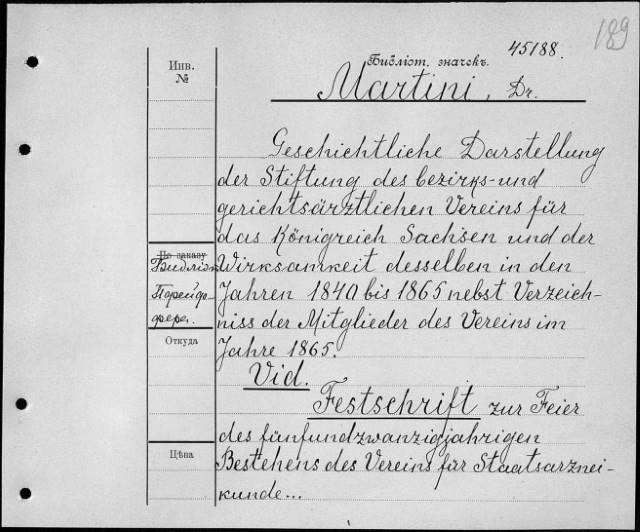 189
45188.
Инв.
№
Библіот. значекъ.
Martini, Dr.
Geschichtliche Darstellung
der Stiftung des bezirks-und
gerichtsärztlichen Vereins für
das Königreich Sachsen und der
По заказу
Wirksamkeit desselben in den
Jahren 1840 bis 1865 nebst Verzeich-
niss der Mitglieder des Vereins im
Откуда
Jahre 1865.
Vid.
Festschrift zur Feier
des fünfundzwanzigjahrigen
Цѣна
Bestehens des Vereins für Staatsarznei-
kunde...